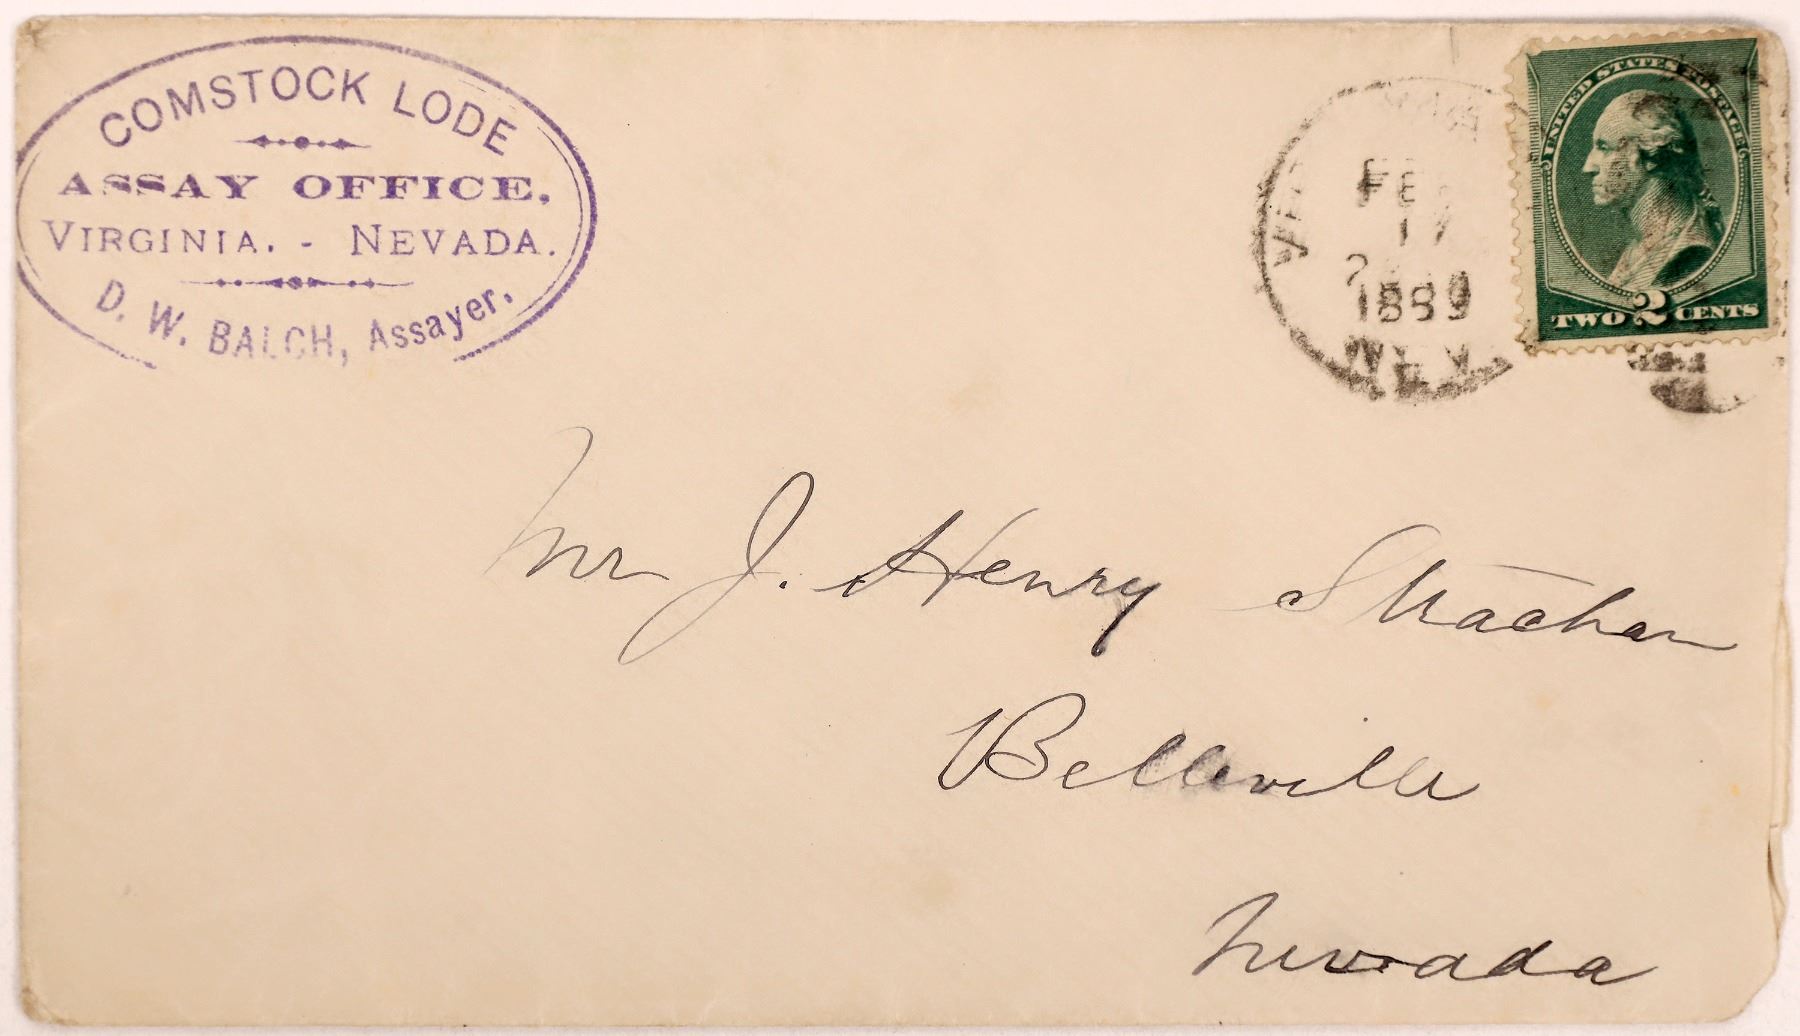 COMSTOCK LODE
ASSAY OFFICE.
VIRGINIA. - NEVADA.
D. W. BALCH, Assayer.
FEB
17
1889
NEV
UNITED STATES POSTAGE
TWO 2 CENTS
Mr J. Henry Strachan
Belleville
Nevada